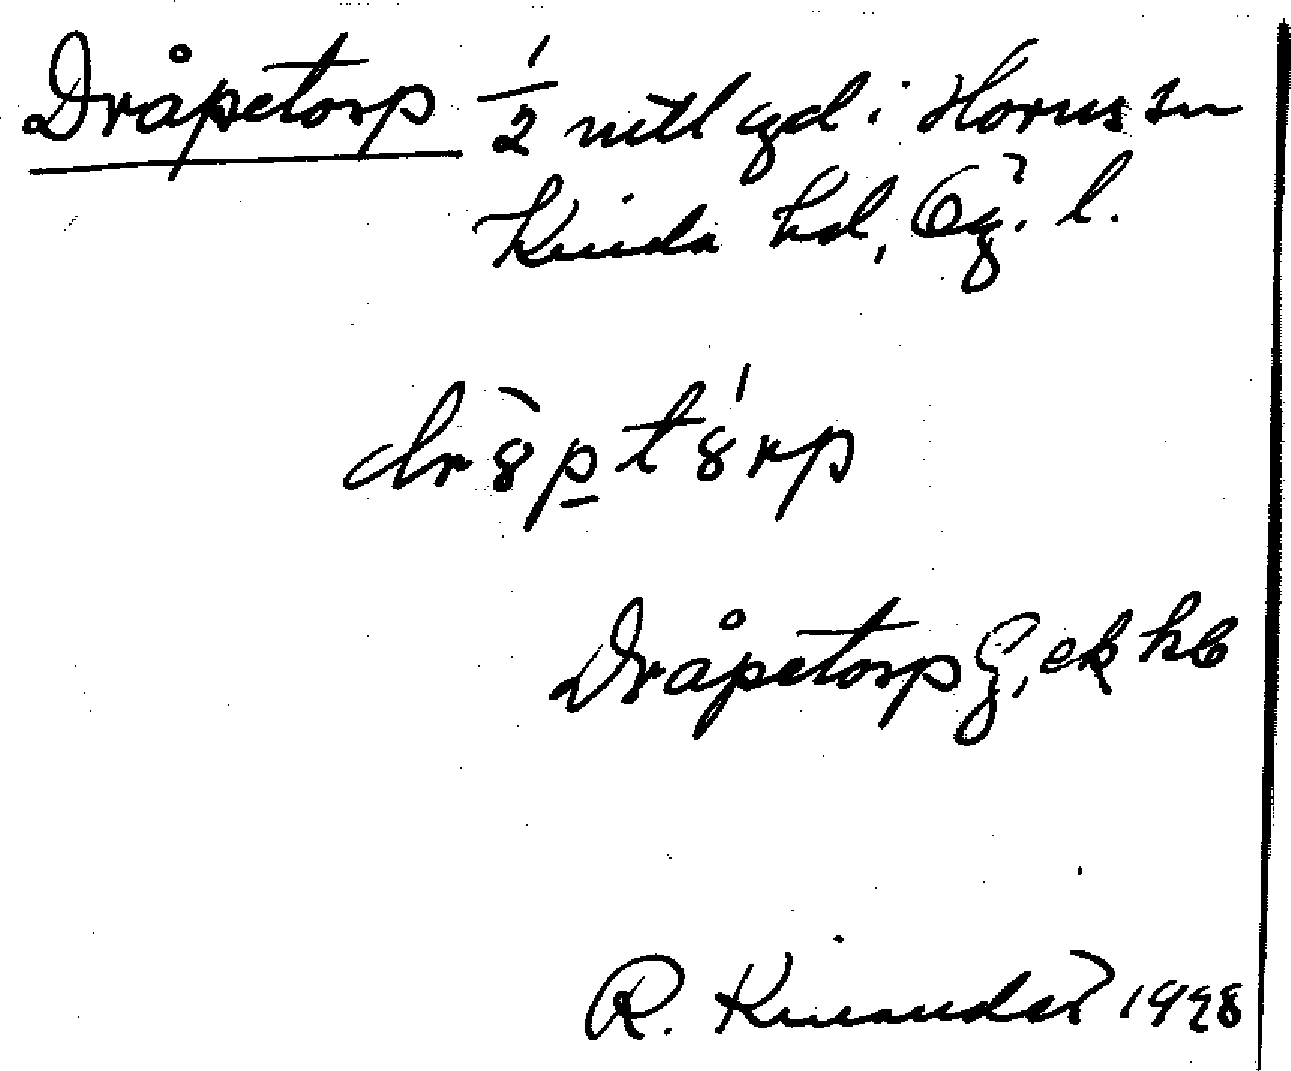 Dråpetorp 1/2 mtl gd i Horns sn
Kinda hd, Ög. l.
dr8̀pt8́rp
Dråpetorp G, ek hb
R. Kinander 1928